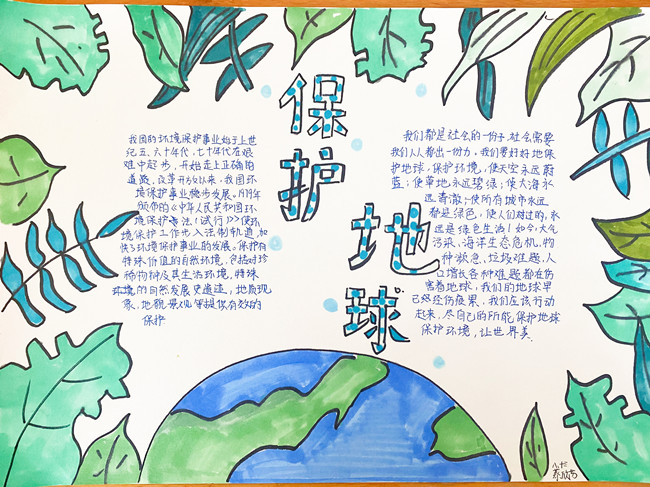 保护
地球
我国的环境保护事业始于上世
纪五、六十年代，七十年代在艰
难中起步，开始走上正确的
道路，改革开放以来，我国环
境保护事业稳步发展。1979年
颁布的《中华人民共和国环
境保护法（试行）》使环
境保护工作步入法制轨道，加
快了环境保护事业的发展。保护有
特殊价值的自然环境，包括对珍
稀物种及其生活环境，特殊
环境的自然发展史遗迹，地质现
象，地貌景观等提供有效的
保护
我们都是社会的一份子，社会需要
我们人人都出一份力，我们要好好地保
护地球，保护环境，使天空永远蔚
蓝；使草地永远碧绿；使大海永
远清澈；使所有城市永远
都是绿色，使人们对过的，永
远是绿色生活！如今，大气
污染、海洋生态危机，物
种濒危、垃圾难题、人
口增长各种难题都在伤
害着地球，我们的地球早
已经经伤疲累，我们应该行动
起来，尽自己的所能，保护地球
保护环境，让世界美.